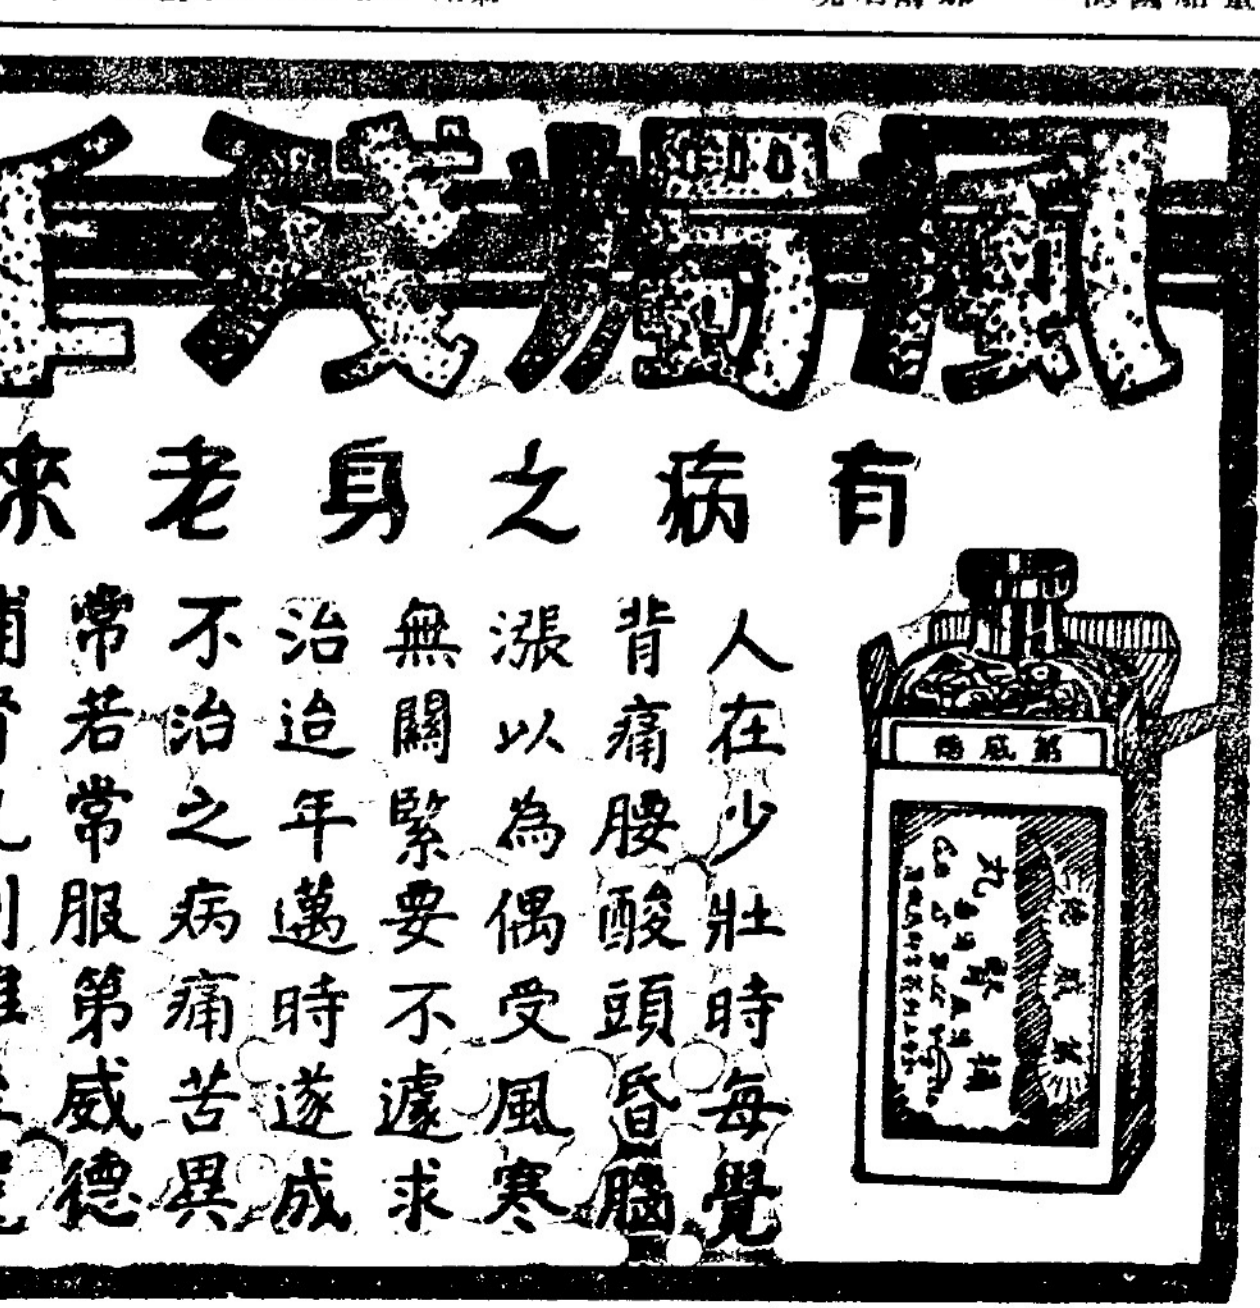 風燭殘年
有病之身老來
第威德
人在少壯時每覺
背痛腰酸頭昏腦
漲以為偶受風寒
無關緊要不遽求
治迨年邁時遂成
不治之病痛苦異
常若常服第威德